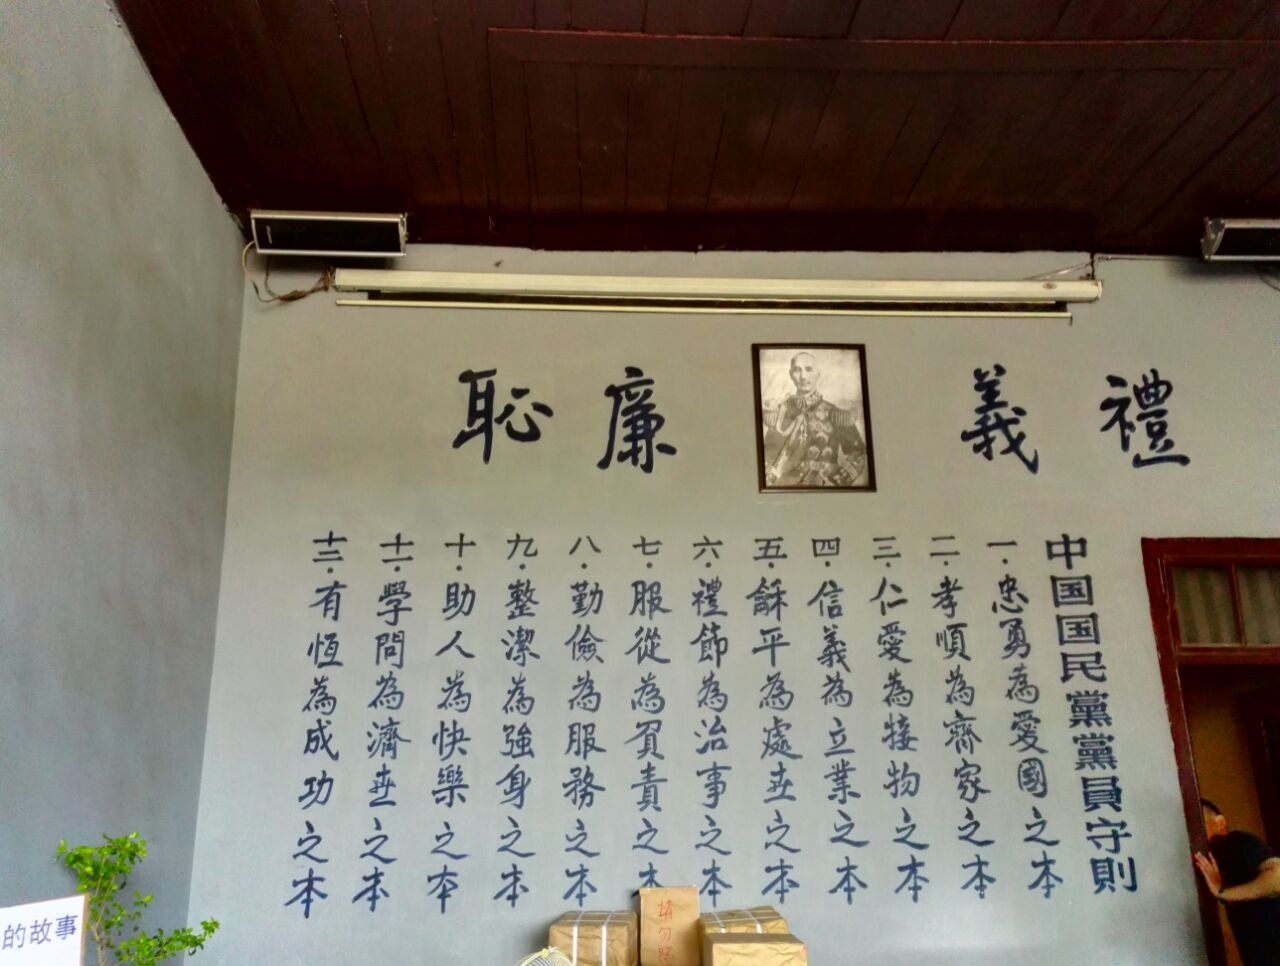 禮義廉恥
中国国民黨黨員守則
一．忠勇為愛國之本
二．孝順為齊家之本
三．仁愛為接物之本
四．信義為立業之本
五．龢平為處世之本
六．禮節為治事之本
七．服從為負責之本
八．勤儉為服務之本
九．整潔為強身之本
十．助人為快樂之本
十一．學問為濟世之本
十二．有恆為成功之本
請勿
的故事